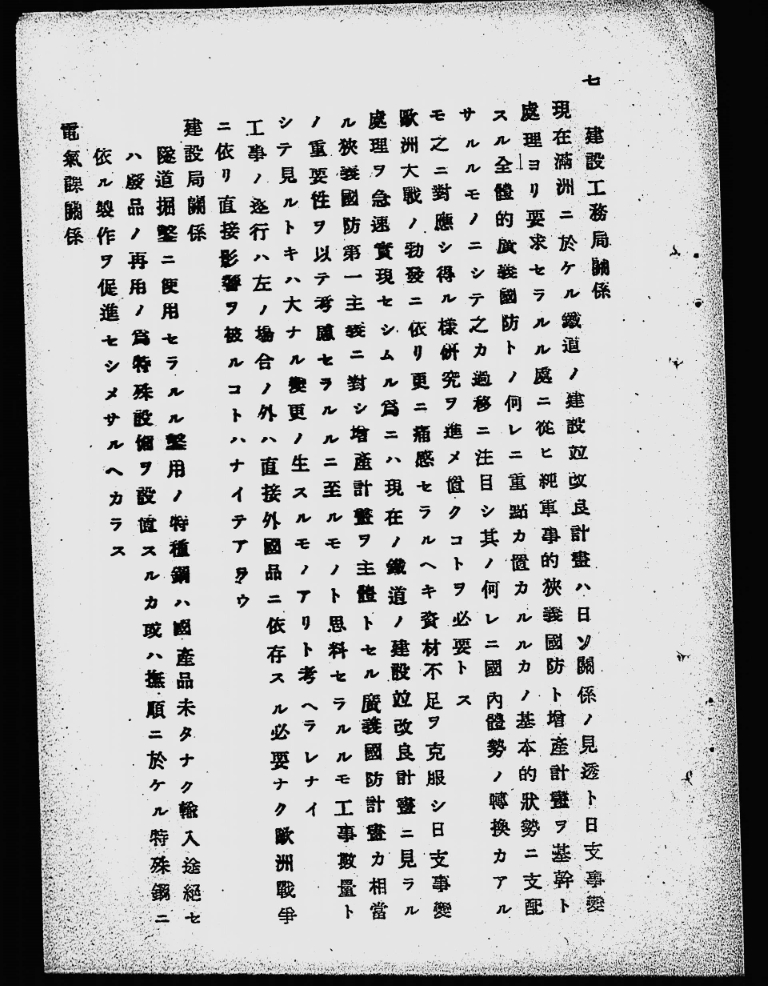 七　建設工務局關係
現在滿洲ニ於ケル鐵道ノ建設竝改良計畫ハ日ソ關係ノ見透ト日支事變
處理ヨリ要求セラルル處ニ從ヒ純軍事的狹義國防ト增產計畫ヲ基幹ト
スル全體的廣義國防トノ何レニ重點カ置カルルカノ基本的狀勢ニ支配
サルルモノニシテ之カ過移ニ注目シ其ノ何レニ國內體勢ノ轉換カアル
モ之ニ對應シ得ル樣硏究ヲ進メ置クコトヲ必要トス
歐洲大戰ノ勃發ニ依リ更ニ痛感セラルヘキ資材不足ヲ克服シ日支事變
處理ヲ急速實現セシムル爲ニハ現在ノ鐵道ノ建設竝改良計畫ニ見ラル
ル狹義國防第一主義ニ對シ增產計畫ヲ主體トセル廣義國防計畫カ相當
ノ重要性ヲ以テ考慮セラルルニ至ルモノト思料セラルルモ工事數量ト
シテ見ルトキハ大ナル變更ノ生スルモノアリト考ヘラレナイ
工事ノ遂行ハ左ノ場合ノ外ハ直接外國品ニ依存スル必要ナク歐洲戰爭
ニ依リ直接影響ヲ被ルコトハナイテアラウ
建設局關係
隧道掘鑿ニ使用セラルル鑿用ノ特種鋼ハ國產品未タナク輸入途絕セ
ハ廢品ノ再用ノ爲特殊設備ヲ設置スルカ或ハ撫順ニ於ケル特殊鋼ニ
依ル製作ヲ促進セシメサルヘカラス
電氣課關係